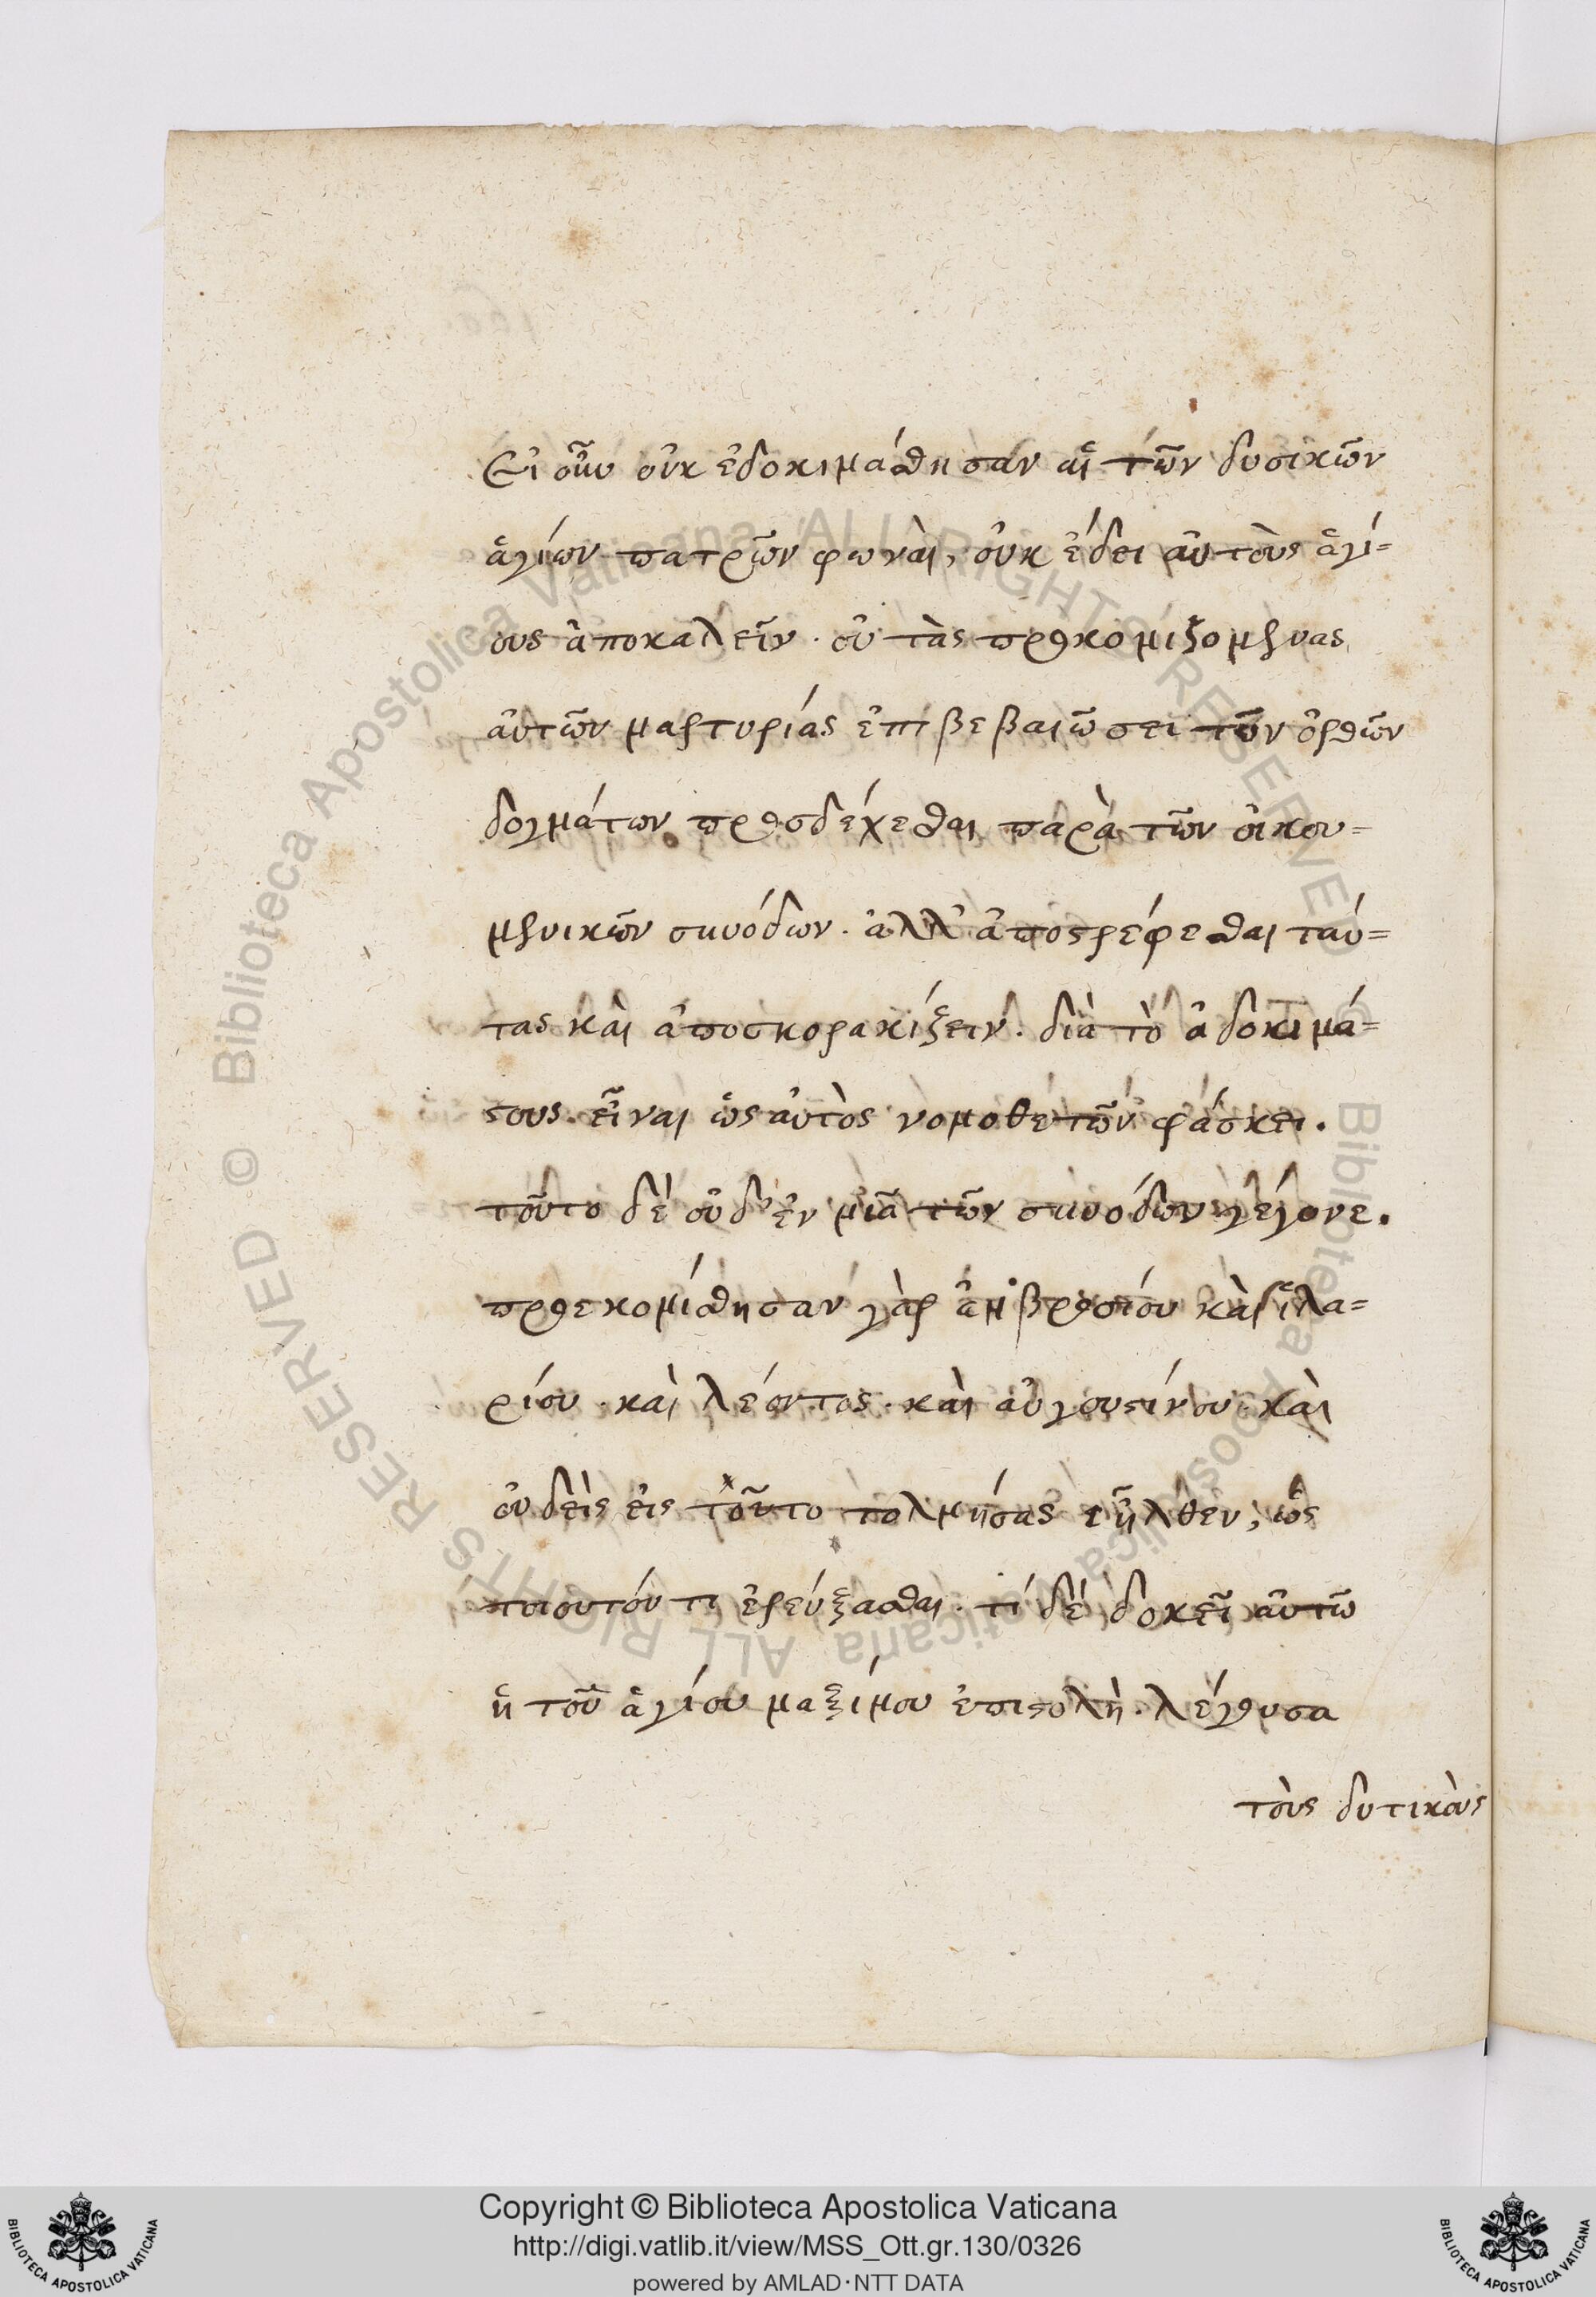 Εἰ οὖν οὐκ ἐδοκιμάσθησαν αἱ τῶν δυσικῶν
ἁγίων πατρῶν φωναὶ, οὐκ ἔδει αὐτοὺς ἁγί=
ους ἀποκαλεῖν · οὐ τὰς προκομιζομένας
αὐτῶν μαρτυρίας ἐπιβεβαιώσει τῶν ὀρθῶν
δογμάτων προσδέχεσθαι παρὰ τῶν οἰκου=
μενικῶν συνόδων · ἀλλ' ἀποστρέφεσθαι ταύ=
τας καὶ ἀποσκορακίζειν · διὰ τὸ ἀδοκιμά=
στους εἶναι ὡς αὐτὸς νομοθετῶν φάσκει.
τοῦτο δὲ οὐδ' ἐν μιᾷ τῶν συνόδων γέγονε.
προεκομίσθησαν γὰρ ἀμβροσίου καὶ ἱλα=
ρίου · καὶ λέοντος · καὶ αὐγουστίνου · καὶ
οὐδεὶς εἰς τοῦτο τολμήσας ἦλθεν, ὡς
τοιοῦτόν τι ἐρεύξασθαι · τί δὲ δοκεῖ αὐτῶ
ἡ τοῦ ἁγίου μαξίμου ἐπιστολὴ · λέγουσα
τοὺς δυτικοὺς
Copyright © Biblioteca Apostolica Vaticana
http://digi.vatlib.it/view/MSS_Ott.gr.130/0326
powered by AMLAD·NTT DATA
BIBLIOTECA APOSTOLICA VATICANA
BIBLIOTECA APOSTOLICA VATICANA
© Biblioteca Apostolica Vaticana ALL RIGHTS RESERVED
© Biblioteca Apostolica Vaticana ALL RIGHTS RESERVED